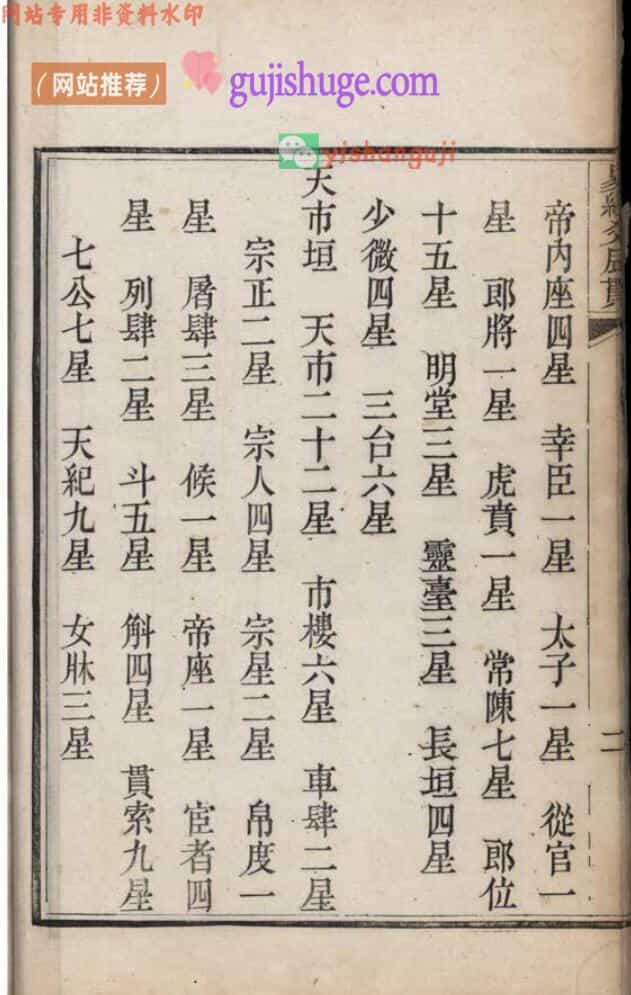 网站专用非资料水印
（网站推荐）
gujishuge.com
yishanguji
二
帝內座四星　幸臣一星　太子一星　從官一
星　郎將一星　虎賁一星　常陳七星　郎位
十五星　明堂三星　靈臺三星　長垣四星
少微四星　三台六星
天市垣　天市二十二星　市樓六星　車肆二星
宗正二星　宗人四星　宗星二星　帛度一
星　屠肆三星　候一星　帝座一星　宦者四
星　列肆二星　斗五星　斛四星　貫索九星
七公七星　天紀九星　女牀三星